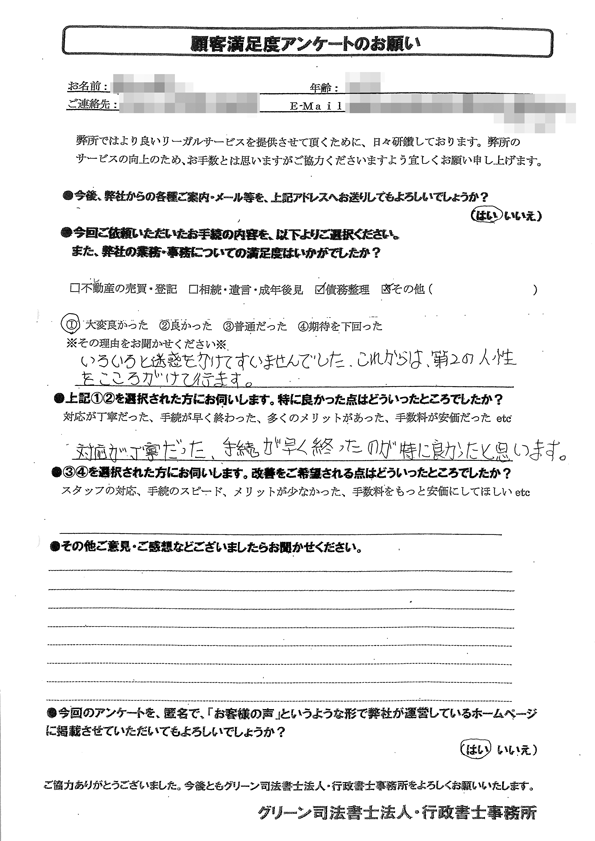 顧客満足度アンケートのお願い
お名前：
年齢：
ご連絡先：
E-Mail
弊所ではより良いリーガルサービスを提供させて頂くために、日々研鑽しております。弊所の
サービスの向上のため、お手数とは思いますがご協力くださいますよう宜しくお願い申し上げます。
●今後、弊社からの各種ご案内・メール等を、上記アドレスへお送りしてもよろしいでしょうか？
（はい いいえ）
●今回ご依頼いただいたお手続の内容を、以下よりご選択ください。
また、弊社の業務・事務についての満足度はいかがでしたか？
□不動産の売買・登記 □相続・遺言・成年後見 ☑債務整理 ☑その他（ ）
① 大変良かった ②良かった ③普通だった ④期待を下回った
※その理由をお聞かせください※
いろいろと迷惑をかけてすいませんでした、これからは、第2の人性
をこころがけて行ます。
●上記①②を選択された方にお伺いします。特に良かった点はどういったところでしたか？
対応が丁寧だった、手続が早く終わった、多くのメリットがあった、手数料が安価だった etc
対応が丁寧だった、手続が早く終ったのが特に良かったと思います。
●③④を選択された方にお伺いします。改善をご希望される点はどういったところでしたか？
スタッフの対応、手続のスピード、メリットが少なかった、手数料をもっと安価にしてほしい etc
●その他ご意見・ご感想などございましたらお聞かせください。
●今回のアンケートを、匿名で、「お客様の声」というような形で弊社が運営しているホームページ
に掲載させていただいてもよろしいでしょうか？
（はい いいえ）
ご協力ありがとうございました。今後ともグリーン司法書士法人・行政書士事務所をよろしくお願いいたします。
グリーン司法書士法人・行政書士事務所